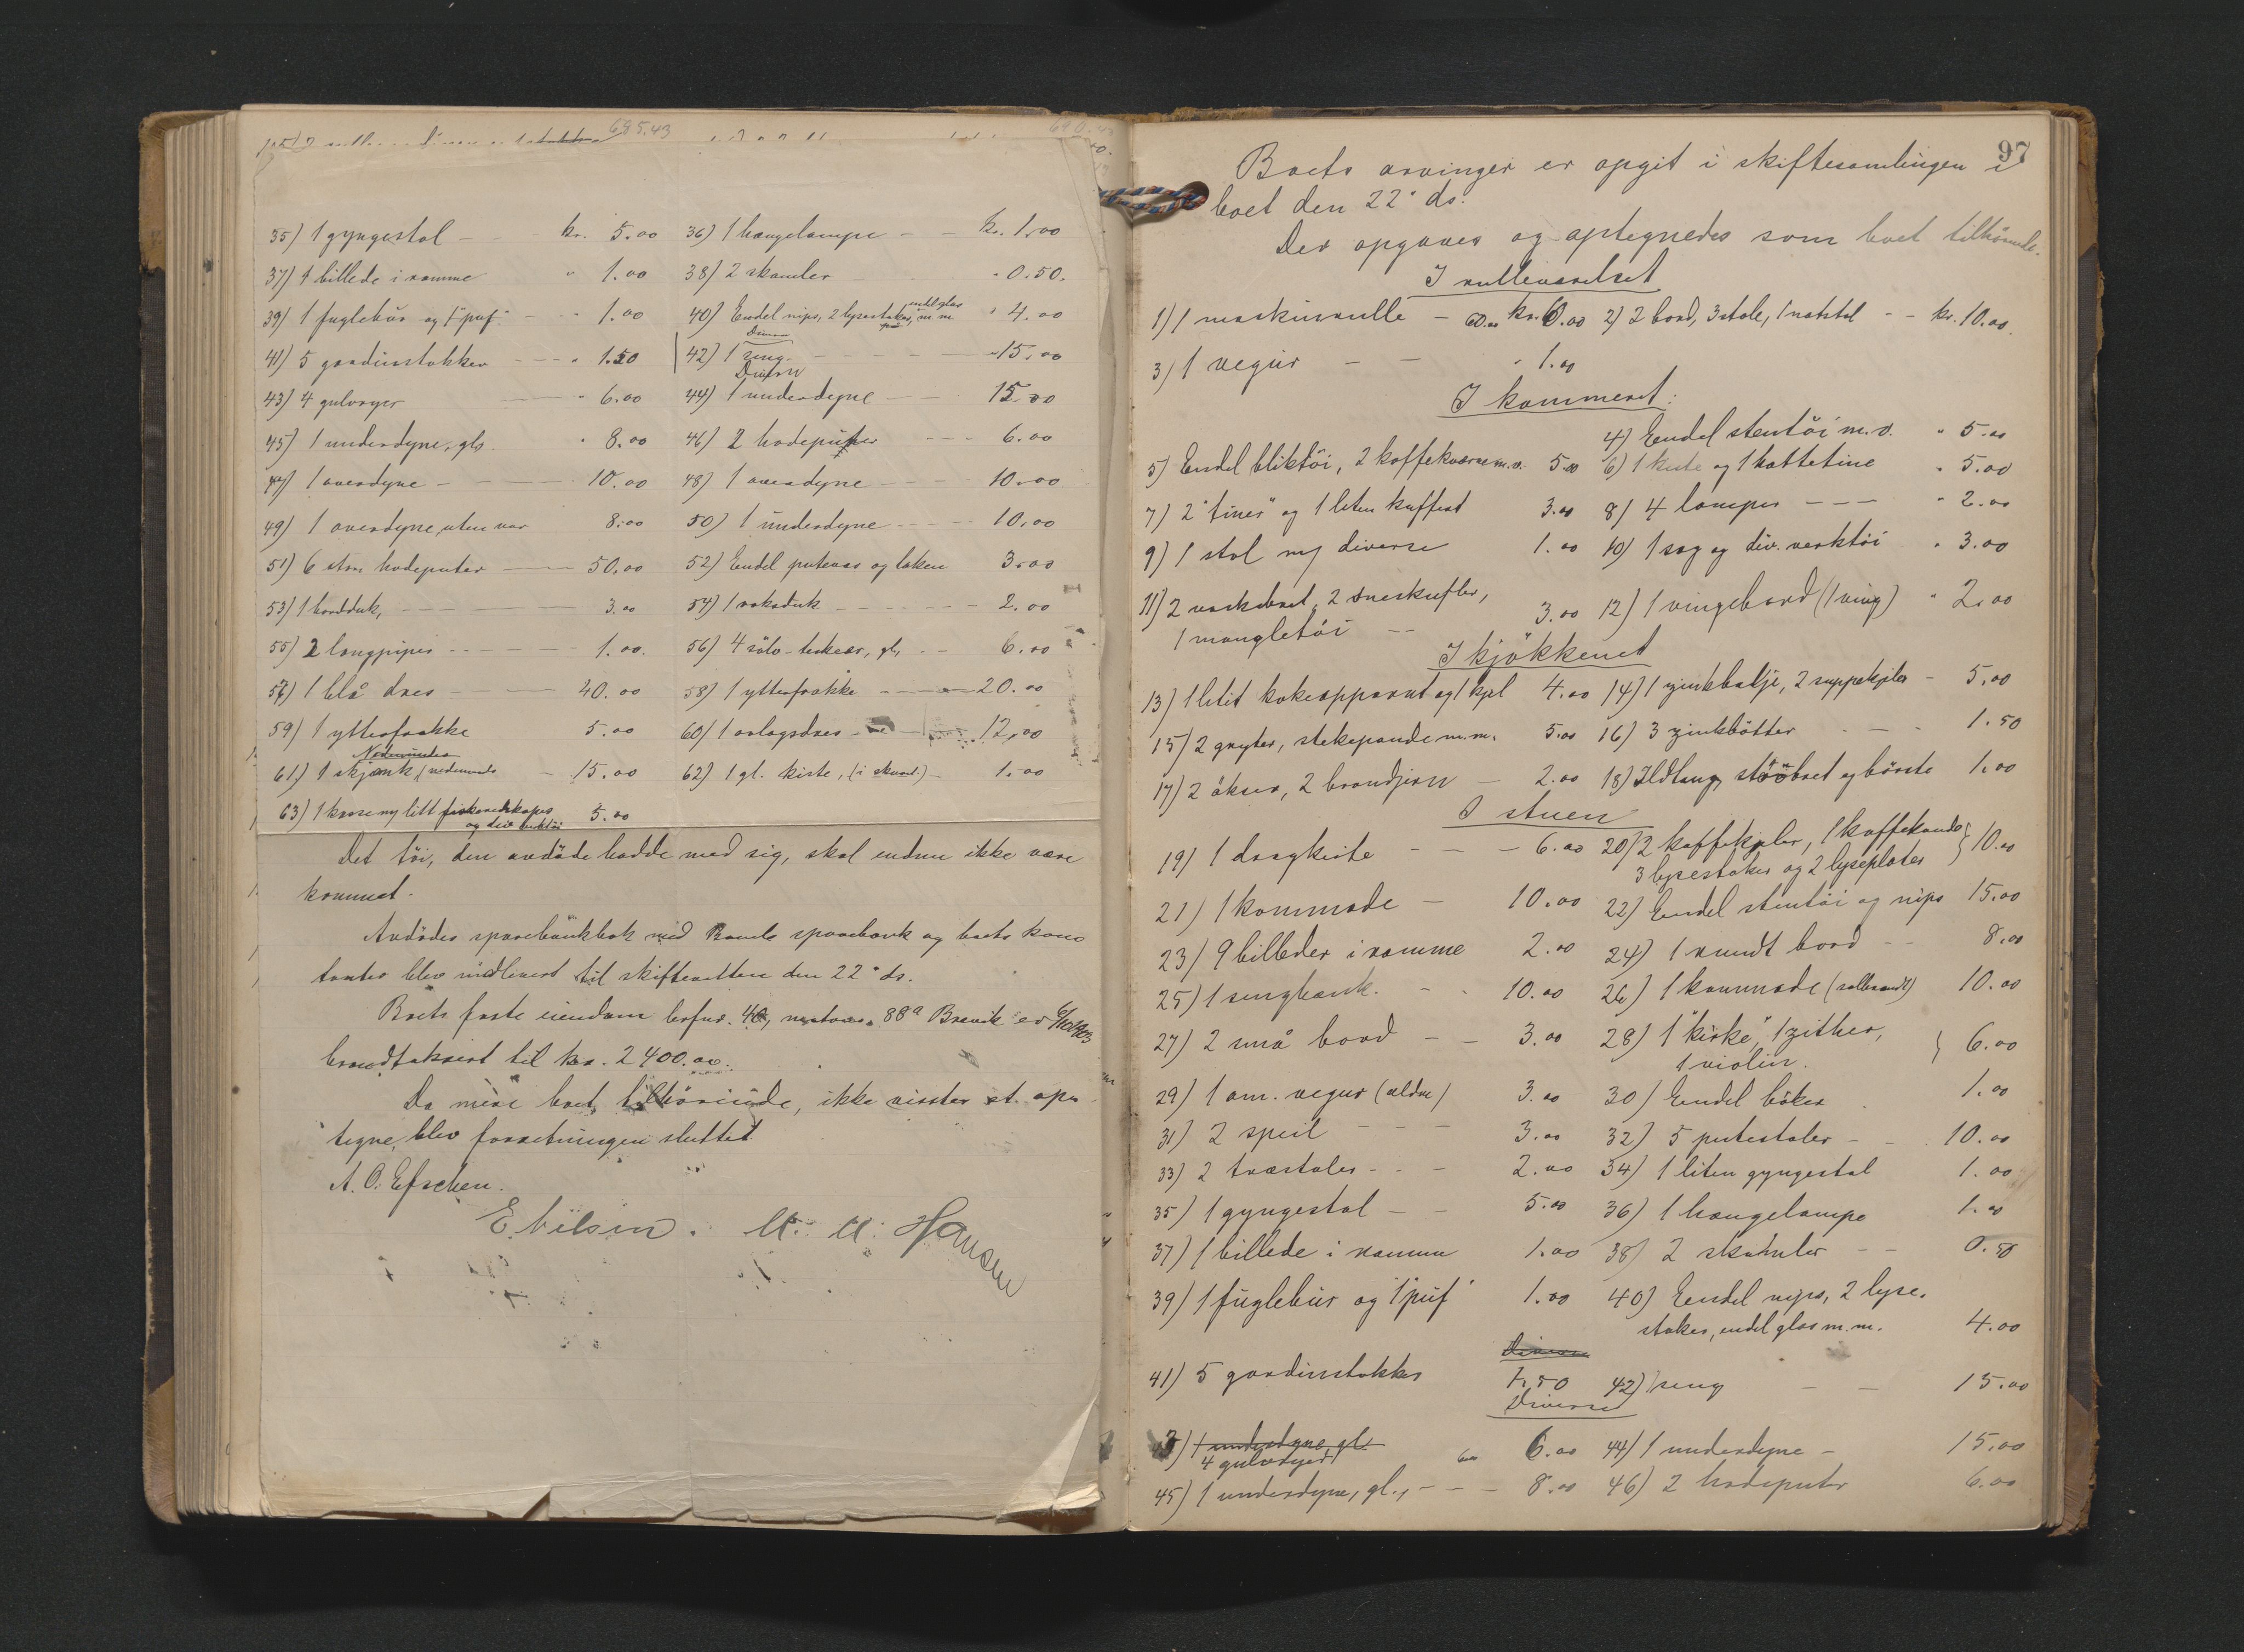 695.43
35) 1 gyngestol - kr. 5.00 36) 1 hængelampe - - kr. 1.00
37) 1 billede i ramme " 1.00 38) 2 skamler " 0.50.
39) 1 fuglebür og 1 "puf" - " 1.00 40) Endel nips, 2 lysestaker, endel glas m.m. " 4.00
41) 5 gardinstokker - - " 1.50 42) 1 seng - - " 15.00
Diverse
43) 4 gulvryer - " 6.00 44) 1 underdyne - - 15.00
45) 1 underdyne, gl. " 8.00 46) 2 hodeputer - - - 6.00
47) 1 overdyne - - 10.00 48) 1 overdyne - - 10.00
49) 1 overdyne, uten var 8.00 50) 1 underdyne - - - 10.00
51) 6 store hodeputer - 50.00 52) Endel putevar og laken 3.00
53) 1 bordduk, - - - 3.00 54) 1 voksduk - - - 2.00
55) 2 langpiper - - - 1.00. 56) 4 sölv-teskeer, gl. - - 6.00
57) 1 blå dres - - 40.00 58) 1 ytterfrakke - - 20.00
59) 1 ytterfrakke 5.00 60) 1 orlogsdres - 12,00
Nedenunder
61) 1 skjænk, nedenunder - 15.00 62) 1 gl. kiste, (i skuret.) - 1.00
63) 1 kasse m/ litt fiskeredskaper 5.00
og div. verktöi
Det töi, den avdöde hadde med sig, skal endnu ikke være
kommet.
Avdödes sparebankbok med Bamle sparebank og boets kon-
tanter blev indlevert til skifteretten den 22' ds.
Boets faste eiendom brfnr. 40, matr.nr. 88a Brevik er
brandtaksert til kr. 2400.00.
Da mere boet tilhörende, ikke visstes at op-
tegne, blev forretningen sluttet.
A. O. Efschen.
E. Nilsen. M. M. Hansen
97
Boets arvinger er opgit i skiftesamlingen i
boet den 22' ds.
Der opgaves og optegnedes som boet tilhörende.
I rulleværelset
1) 1 maskinrulle - 60.00 kr. 60.00 2) 2 bord, 3 stole, 1 natstol - - kr. 10.00.
3) 1 vegur - - " 1.00
I kammeret:
4) Endel stentöi m.v. " 5.00
5) Endel bliktöi, 2 kaffekværne m.v. 5.00 6) 1 kiste og 1 hattetine " 5.00
7) 2 "tiner" og 1 liten kuffert 3.00 8) 4 lamper - - - " 2.00
9) 1 stol m/ diverse 1.00 10) 1 sag og div. verktöi " 3.00
11) 2 vaskebret, 2 sneskufler,
1 mangletöi - - 3.00 12) 1 vingebord (1 ving) " 2.00
I kjökkenet
13) 1 litet kokeapparat og 1 kjel 4.00 14) 1 zinkbalje, 2 suppekjeler - 5.00
15) 2 gryter, stekepande m.m. 5.00 16) 3 zinkbötter - - 1.50
17) 2 økser, 2 brandjern - 2.00 18) Ildtang, støvbret og børste 1.00
I stuen
19) 1 dragkiste - - - 6.00 20) 2 kaffekjeler, 1 kaffekande
3 lysestaker og 2 lyseplater } 10.00
21) 1 kommode - 10.00 22) Endel stentöi og nips 15.00
23) 9 billeder i ramme 2.00 24) 1 rundt bord - - 8.00
25) 1 sengbænk. - - 10.00 26) 1 kommode 10.00
27) 2 små bord - - 3.00 28) 1 "kirke", 1 zither,
1 violin. } 6.00
29) 1 am. vegur (ældre) 3.00 30) Endel böker 1.00
31) 2 speil - - - 3.00 32) 5 putestoler - - 10.00
33) 2 træstoler - - - 2.00 34) 1 liten gyngestol 1.00
35) 1 gyngestol - - 5.00 36) 1 hængelampe 1.00
37) 1 billede i ramme 1.00 38) 2 skamler - - 0.50
39) 1 fuglebür og 1 "puf" 1.00 40) Endel nips, 2 lyse-
staker, endel glas m.m. 4.00
Diverse
41) 5 gardinstokker 1.50 42) 1 seng - - 15.00
Diverse
43) 1 underdyne, gl.
4 gulvryer 6.00 44) 1 underdyne - 15.00
45) 1 underdyne, gl., - - - 8.00 46) 2 hodeputer 6.00